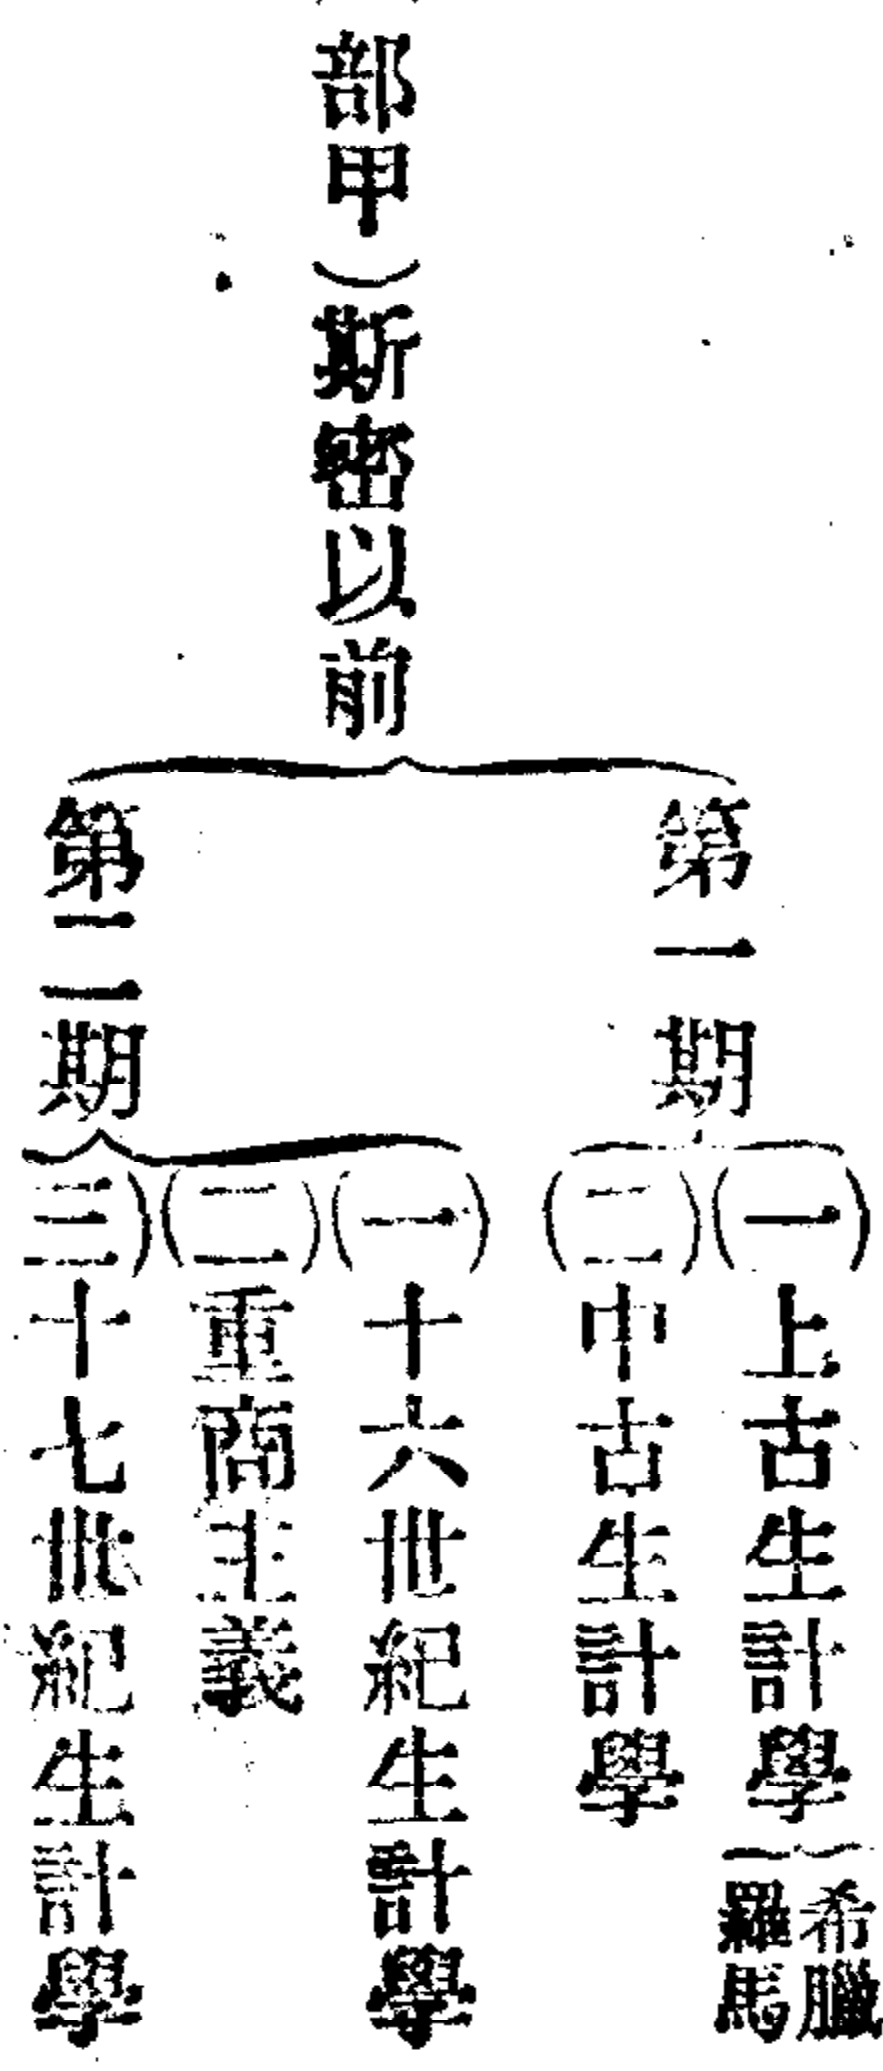 部甲）斯密以前
第一期
（一）上古生計學
希臘
羅馬
（二）中古生計學
第二期
（一）十六世紀生計學
（二）重商主義
（三）十七世紀生計學